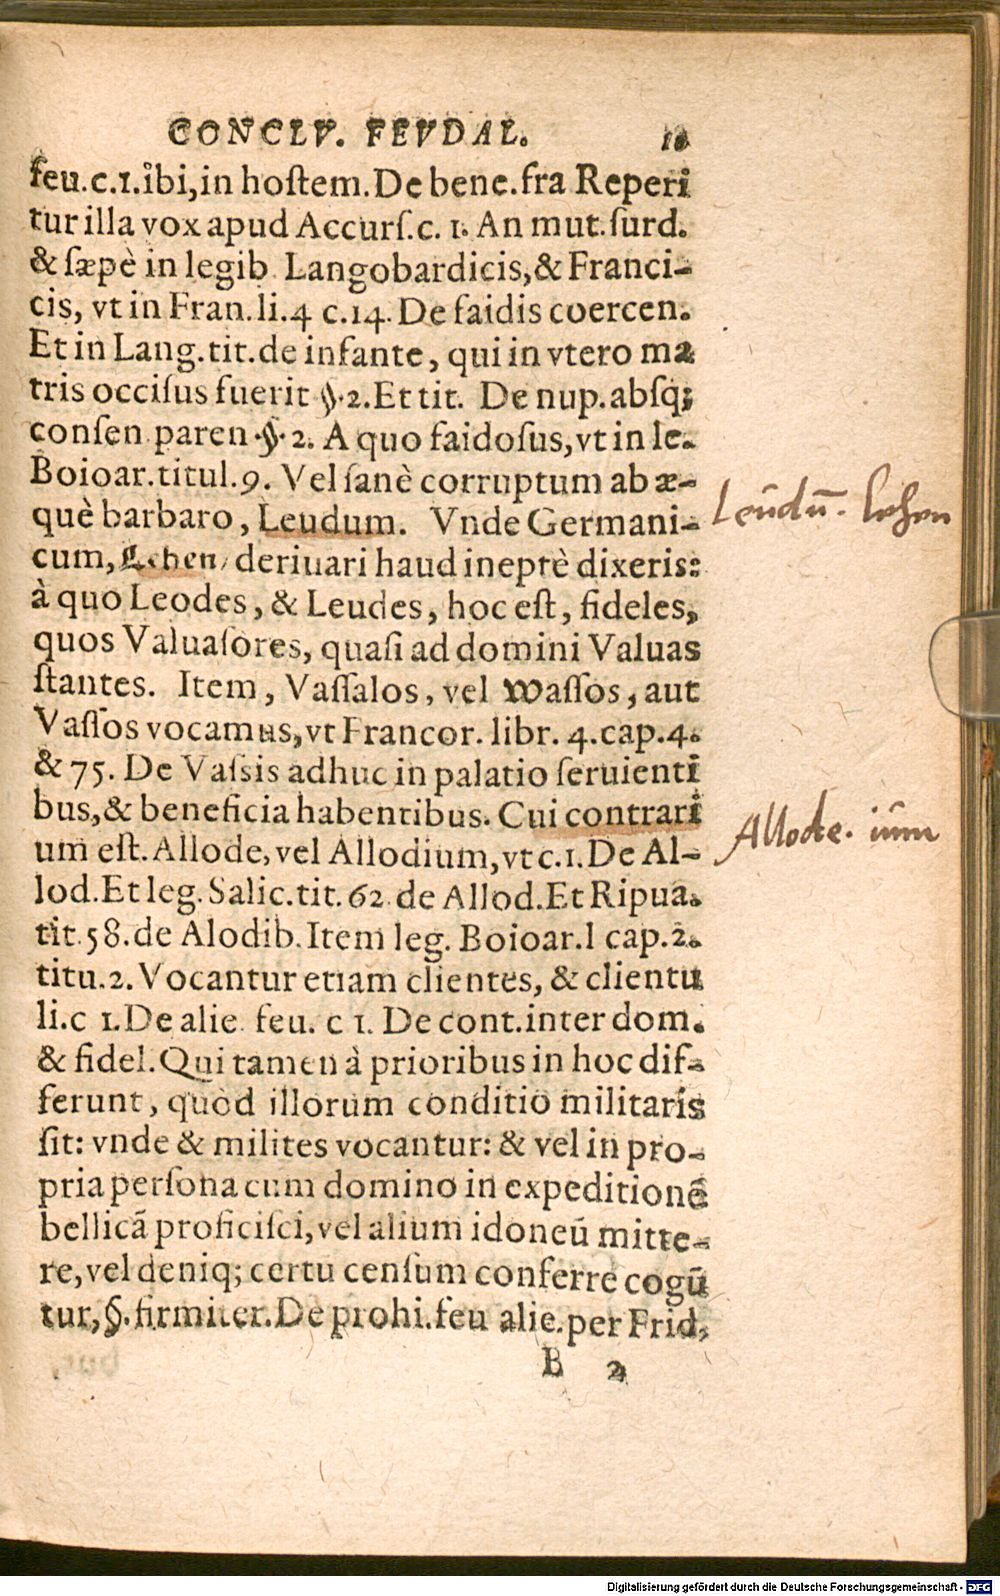 CONCLV. FEVDAL.
feu.c.1.ibi,in hoſtem.De bene.fra Reperi
tur illa vox apud Accurſ.c. 1. An mut.ſurd.
& ſæpè in legib Langobardicis,& Franci-
cis, vt in Fran.li.4 c.14. De faidis coercen.
Et in Lang.tit.de infante, qui in vtero ma
tris occiſus fuerit §.2.Et tit. De nup.abſq;
conſen paren.§.2. A quo faidoſus,vt in le.
Boioar.titul.9. Vel ſanè corruptum ab æ-
què barbaro, Leudum. Vnde Germani-
cum, Lehen/ deriuari haud ineptè dixeris:
à quo Leodes, & Leudes, hoc eſt, fideles,
quos Valuaſores, quaſi ad domini Valuas
ſtantes. Item, Vaſſalos, vel Waſſos, aut
Vaſſos vocamus,vt Francor. libr. 4.cap.4.
& 75. De Vaſsis adhuc in palatio ſeruienti
bus,& beneficia habentibus. Cui contrari
um eſt.Allode,vel Allodium,vt c.1.De Al-
lod.Et leg. Salic.tit.62 de Allod.Et Ripua.
tit.58.de Alodib.Item leg. Boioar.l cap.2.
titu.2.Vocantur etiam clientes, & clientu
li.c 1.De alie feu. c 1. De cont.inter dom.
& fidel.Qui tamen à prioribus in hoc dif-
ferunt, quòd illorum conditio militaris
ſit: vnde & milites vocantur: & vel in pro-
pria perſona cum domino in expeditionē
bellicā proficiſci,vel alium idoneū mitte-
re,vel deniq; certu cenſum conferre cogū
tur,§.firmiter.De prohi.feu alie.per Frid,
B 2
Leūdū. lehen
Allode. iūm
Digitalisierung gefördert durch die Deutsche Forschungsgemeinschaft - DFG